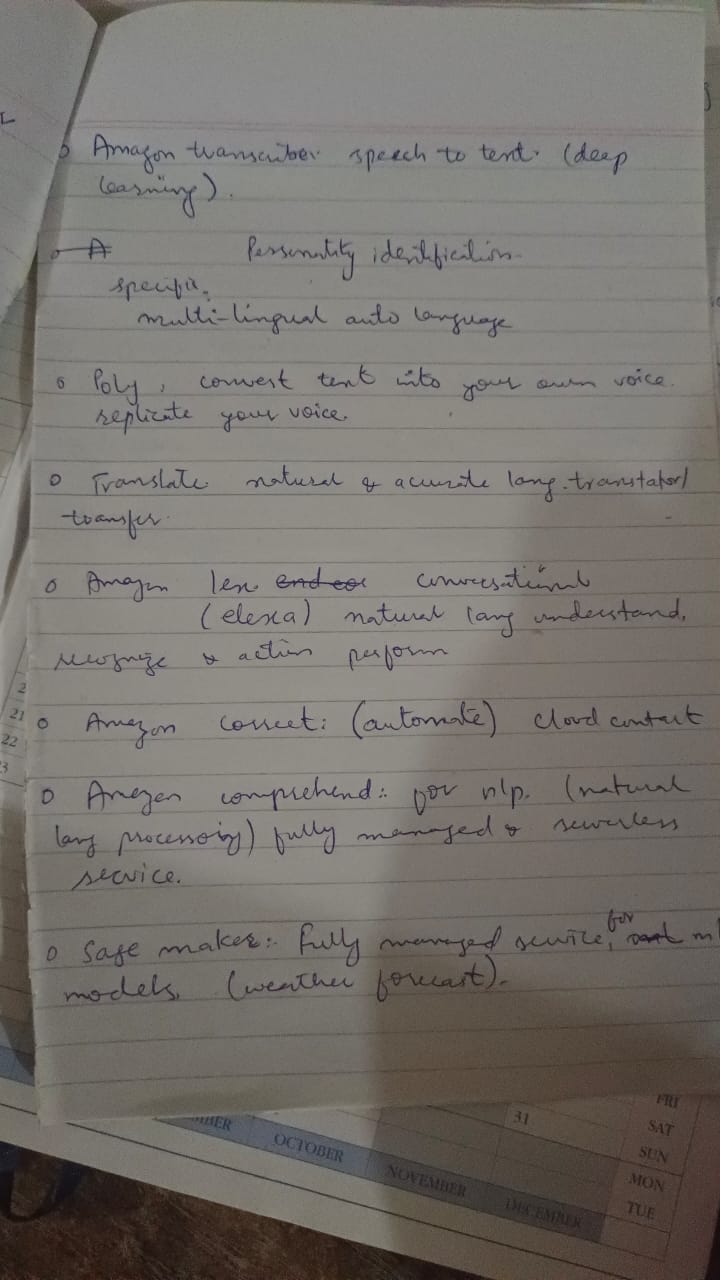 Amazon transcriber. speech to text. (deep
learning).
A
Personality identification
specific.
multi-lingual auto language
Poly, convert text into your own voice.
replicate your voice.
Translate. natural & accurate lang. translator/
transfer.
Amazon lex. conversational
(elexa) natural lang understand,
recognize & action perform
Amazon connect: (automate) cloud contact
Amazon comprehend: for nlp. (natural
lang processing) fully managed & serverless
service.
Sage maker: fully managed service, for ml
models. (weather forecast).
31
FRI
SAT
SUN
MON
TUE
OCTOBER
NOVEMBER
DECEMBER
21
22